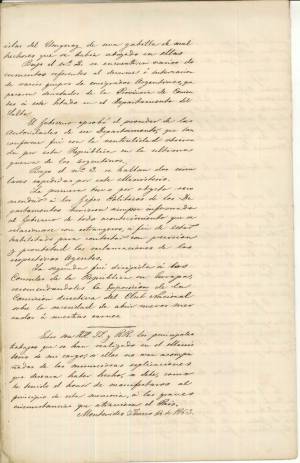 culas del Uruguay de una gabilla de mal
hechores que se habia abrigado en ellas
Bajo el n.º D. se encuentran varios do
cumentos referentes al desarme é internacion
de varios grupos de emigrados Argentinos, pa
procedentes de la Provincia de Corrien
tes á este litado en el Departamento del
Salto.
El Gobierno aprobó el proceder de las
Autoridades de ese Departamento, que tan
conforme fué con la neutralidad observa
da por esta República en la última
guerra de los argentinos.
Bajo el n.º E. se hallan dos circu
lares espedidas por este Ministerio.
La primera tuvo por objeto reco
mendar á los Jefes Politicos de los De
partamentos tuviesen siempre informado
al Gobierno de todo acontecimiento que se
relacionase con estrangeros, á fin de estar
habilitado para contestar con precision
y prontitud las reclamaciones de los
respectivos Agentes.
La segunda fué dirijida á los
Consules de la República en Europa,
recomendandoles la Esposicion de la
Comision directiva del Club Nacional
sobre la necesidad de abrir nuevos mer
cados á nuestras carnes
Estos son HH. SS. y RR. los principales
trabajos que se han realizado en el Minis
terio de mi cargo, á ellos no van acompa
ñadas de las minuciosas esplicaciones
que deseaba haber hecho, á ellos, como
he tenido el honor de manifestaros al
principio de esta memoria, á las graves
circunstancias que atraviesa el Pais.
Montevideo 14 de 1863.